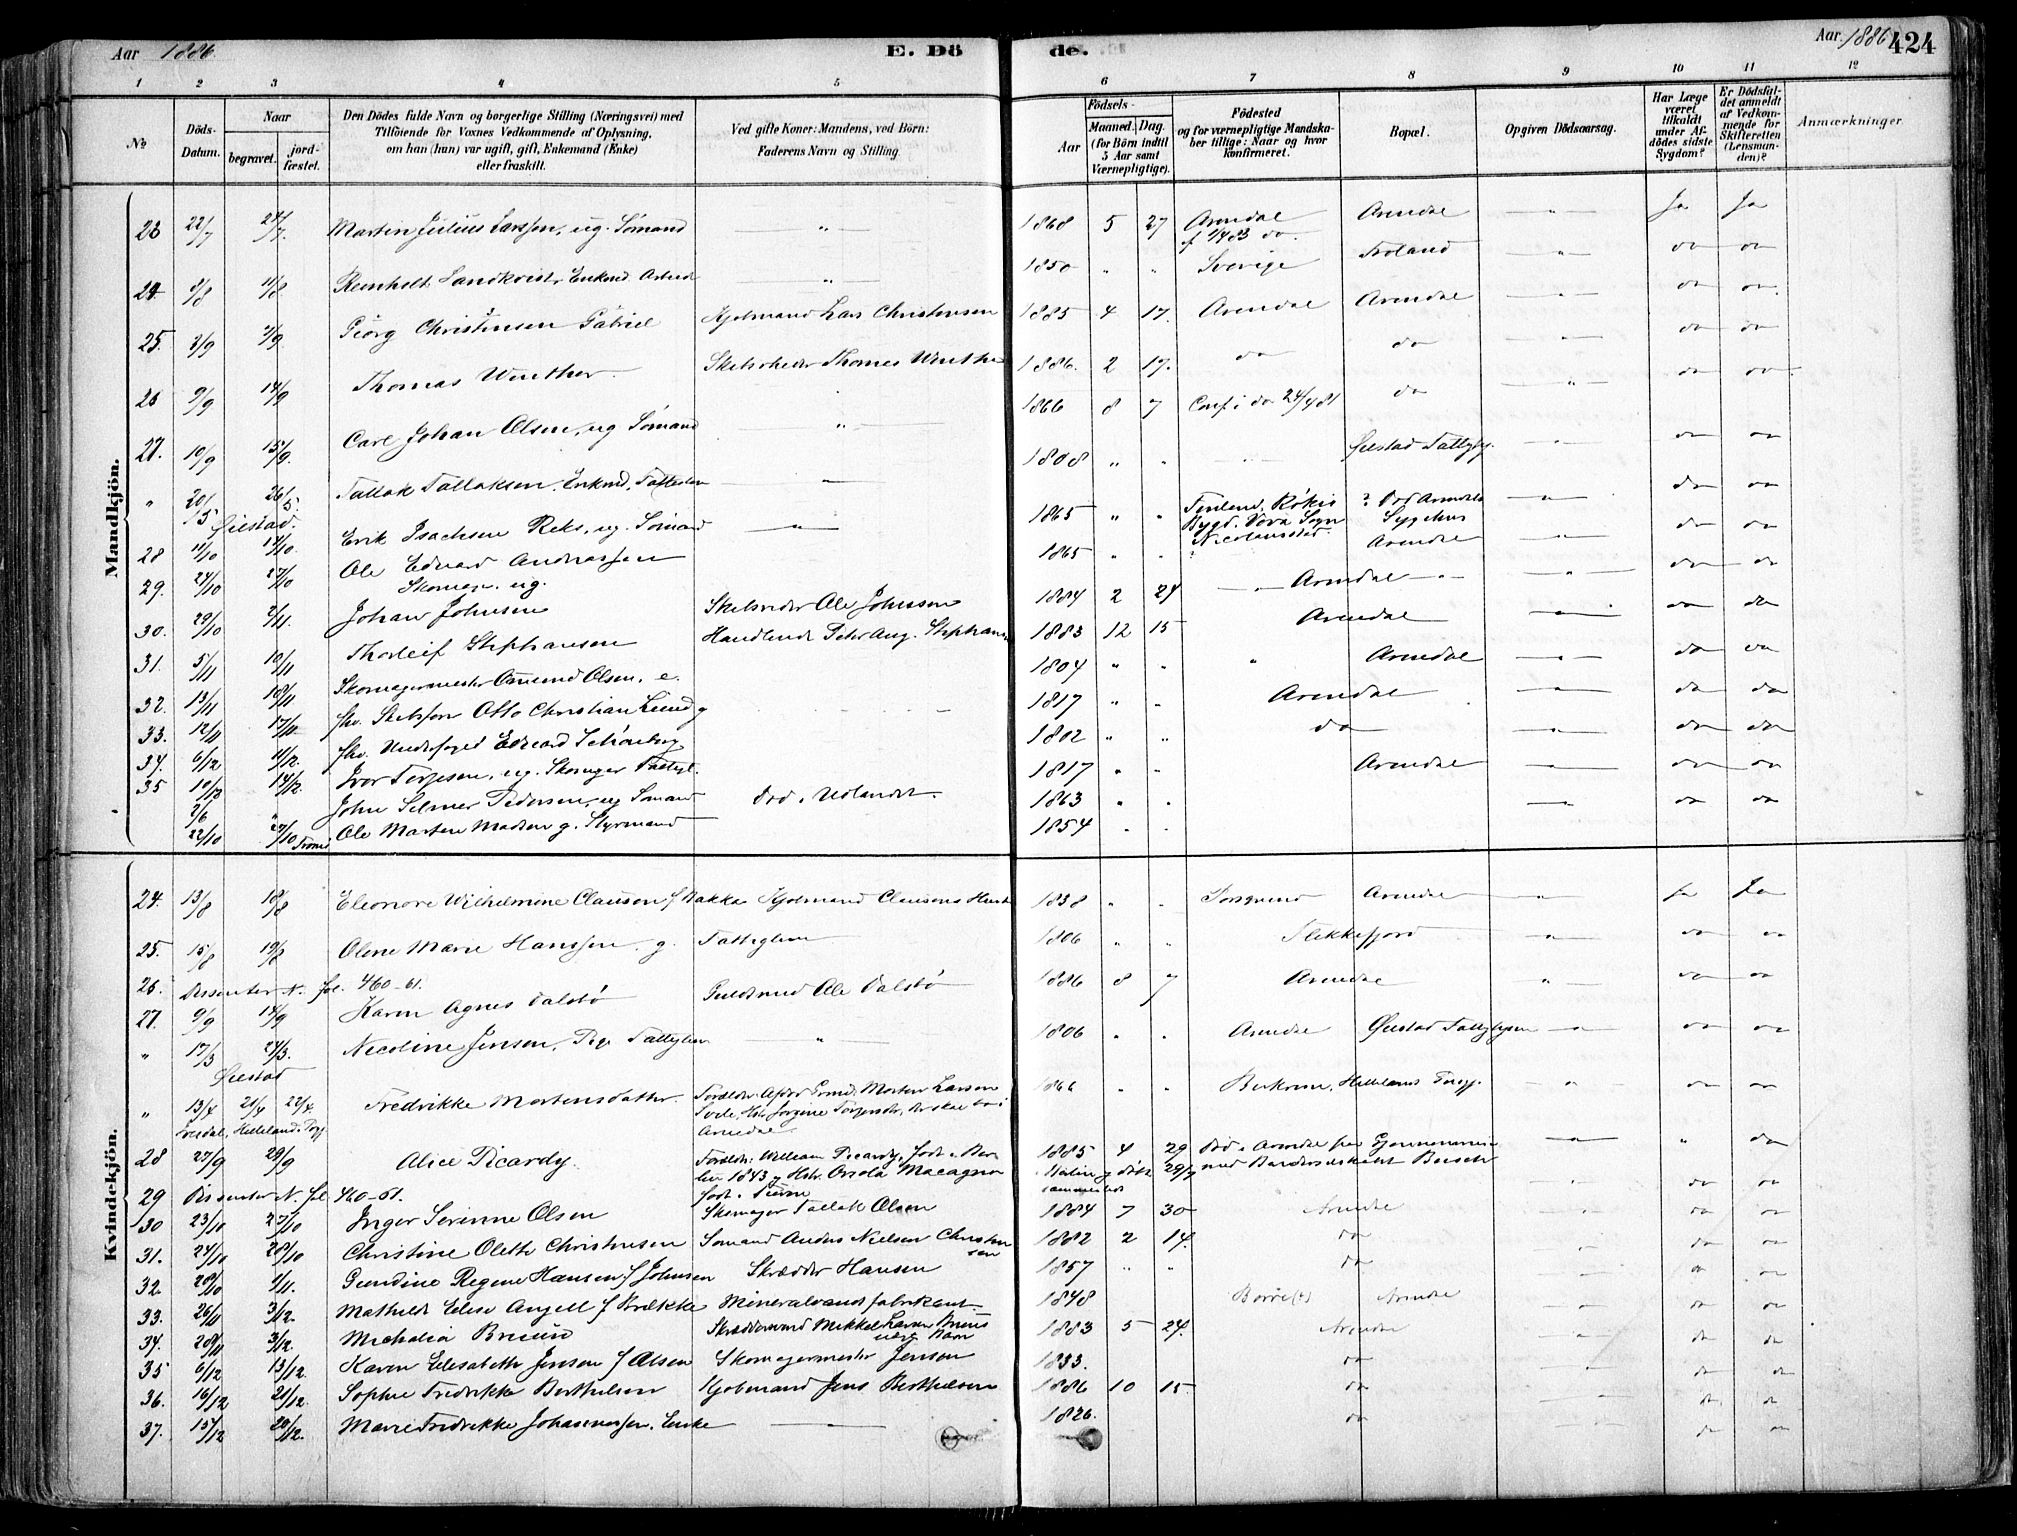 Aar 1886.
E. Dö
de.
Aar 1886
424
1 2 3 4 5 6 7 8 9 10 11 12
No
Döds-Datum.
Naar
begravet.
jord-fæstet.
Den Dödes fulde Navn og borgerlige Stilling (Næringsvei) med
Tilföiende for Voxnes Vedkommende af Oplysning,
om han (hun) var ugift, gift, Enkemand (Enke)
eller fraskilt.
Ved gifte Koner: Mandens, ved Börn:
Faderens Navn og Stilling
Födsels-
Aar
Maaned. Dag.
(for Börn indtil
5 Aar samt
Værnepligtige).
Födested
og for værnepligtige Mandska-
ber tillige: Naar og hvor
konfirmeret.
Bopæl.
Opgiven Dödsaarsag.
Har Læge
været
tilkaldt
under Af-
dödes sidste
Sygdom?
Er Dödsfal-
det anmeldt
af Vedkom-
mende for
Skifteretten
(Lensman-
den)?
Anmærkninger
Mandkjön.
23 22/7 27/7 Martin Julius Larssen, ug. Sömand " 1868 5 27 Arendal Arendal " Ja Ja
f 1/4 83 do.
24 9/8 11/8 Reinholt Sandkvist, Enkmd Arbeid " 1850 " " Sverige Froland " do do
25. 3/9 7/9 Georg Christensen Gabriel Kjobmand Lars Christensen 1885 4 17. Arendal Arendal " do do
26 9/9 14/9 Thomas Winther Thomas Winther 1886. 2 17. do do " do do
27. 10/9 15/9. Carl Johan Olsen, ug Sömand " 1866 8 7 Conf i do 24/4 81 do " do do
" 20/5 26/5. Tallak Tallaksen, Enkmd, " 1808 " " Øiestad Fattiggj. " do do
Øiestad.
28 11/10 14/10. Erik Isachsen Reks, ug. Sömand " 1865 " " Finland, Rökis ? Död Arendals " do do
Bygd. Vörå Sogn Sygehus
Nicolaistad.
29. 24/10 27/10 Ole Edvard Andreassen 1865 " " ? Arendal " do do
Skomager, ug.
30. 29/10 2/11. Johan Johnsen Ole Johnsen 1884 2 24 Arendal " do do
31. 5/11 10/11 Thorleif Stephansen Handlende Peter Aug. Stephansen 1883 12 15 Arendal " do do
32. 13/11 18/11 Skomagermester Aanund Olsen, e. 1804 " " " Arendal " do do
33. 12/11 17/11. fhv. Otto Christian Lund g 1817 " " Arendal " do do
34. 6/12 11/12. fhv. Underfoged Edvard Schönberg 1802 " " do " do do
35 10/12 14/12. Iver Terjesen, ug. Skomager 1817 " " Arendal " do do
2/6 " John Selmer Pedersen, ug Sömand Död i Udlandet. 1863 " " " do do
22/10 27/10 Tromö Ole Martin Madsen g. Styrmand 1854 " "
Kvindekjön.
24. 13/8 18/8 Eleonore Wilhelmine Clausen f Bakka Kjobmand Clausens Hust 1838 " " Porsgrund Arendal " Ja Ja
25. 15/8 19/8 Olene Marie Hanssen. g. Fattiglem 1806 " " Flekkefjord " do do
26. Dissenter N. fol. 460-61.
27. 9/9 14/9 Karen Agnes Dalsbö Guldsmed Ole Dalsbö 1886 8 7 Arendal " do do
" 17/3 24/3. Nicoline Jensen, Pige Fattiglem " 1806 " " Arendal Øiestad " do do
Øiestad
" 13/4 21/4 22/4. Fredrikke Mortensdatter. Forældre: Morten Larsen 1866 " " Bjerkrem, Hellelands Prgj. " do do
Helleland Prgj.
Arendal
28 27/9 29/9 Alice Picardy. Forældre: William Picardy, født i Ber- 1885 4 29 Död i Arendal paa Gjennemreise " " do
lin 1843 og Hstr. Orsola Macagno 29/9
født i Turin sammesteds
29 Dissenter N. fol 460-61. " do do
30 23/10 27/10 Inger Serinne Olsen Skomager Tallak Olsen 1884 7 30 Arendal " do do
31. 24/10 28/10 Christine Olette Christensen Sömand Anders Nielsen Christen 1882 2 14. do " do do
sen
32. 28/10 1/11. Gundine Regine Hansen f Johnsen Skrædder Hansen 1857 " " do " do do
33. 26/11 3/12. Mathilde Elise Angell f Brække Mineralvandsfabrikant 1848 Borre(?) Arendal " do do
34. 28/11 3/12. Michalia Breiird Mikkel Larsen 1883 5 24. Arendal " do do
35 6/12 13/12. Karen Elisabeth Jensen f Olsen Skomagermester Jensen 1833. do do do
36. 16/12 21/12. Sophie Fredrikke Berthelsen Kjobmand Jens Berthelsen 1886 10 15. do do do
37. 15/12 20/12. Marie Fredrikke Johannessen. Enke 1826. do do do